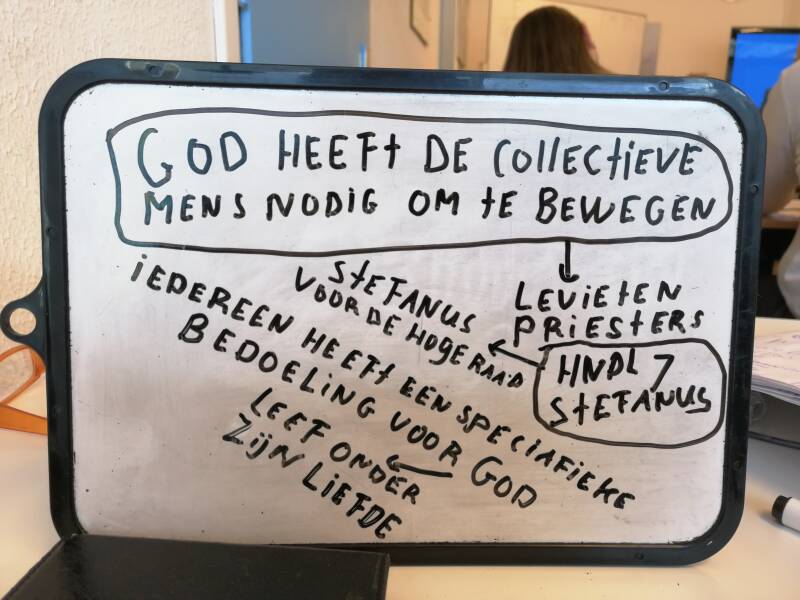 GOD HEEFT DE COLLECTIEVE
MENS NODIG OM TE BEWEGEN
LEVIETEN
PRIESTERS
HNDL 7
STEFANUS
STEFANUS
VOOR DE HOGE RAAD
IEDEREEN HEEFT EEN SPECIAFIEKE
BEDOELING VOOR GOD
LEEF ONDER
ZIJN LIEFDE